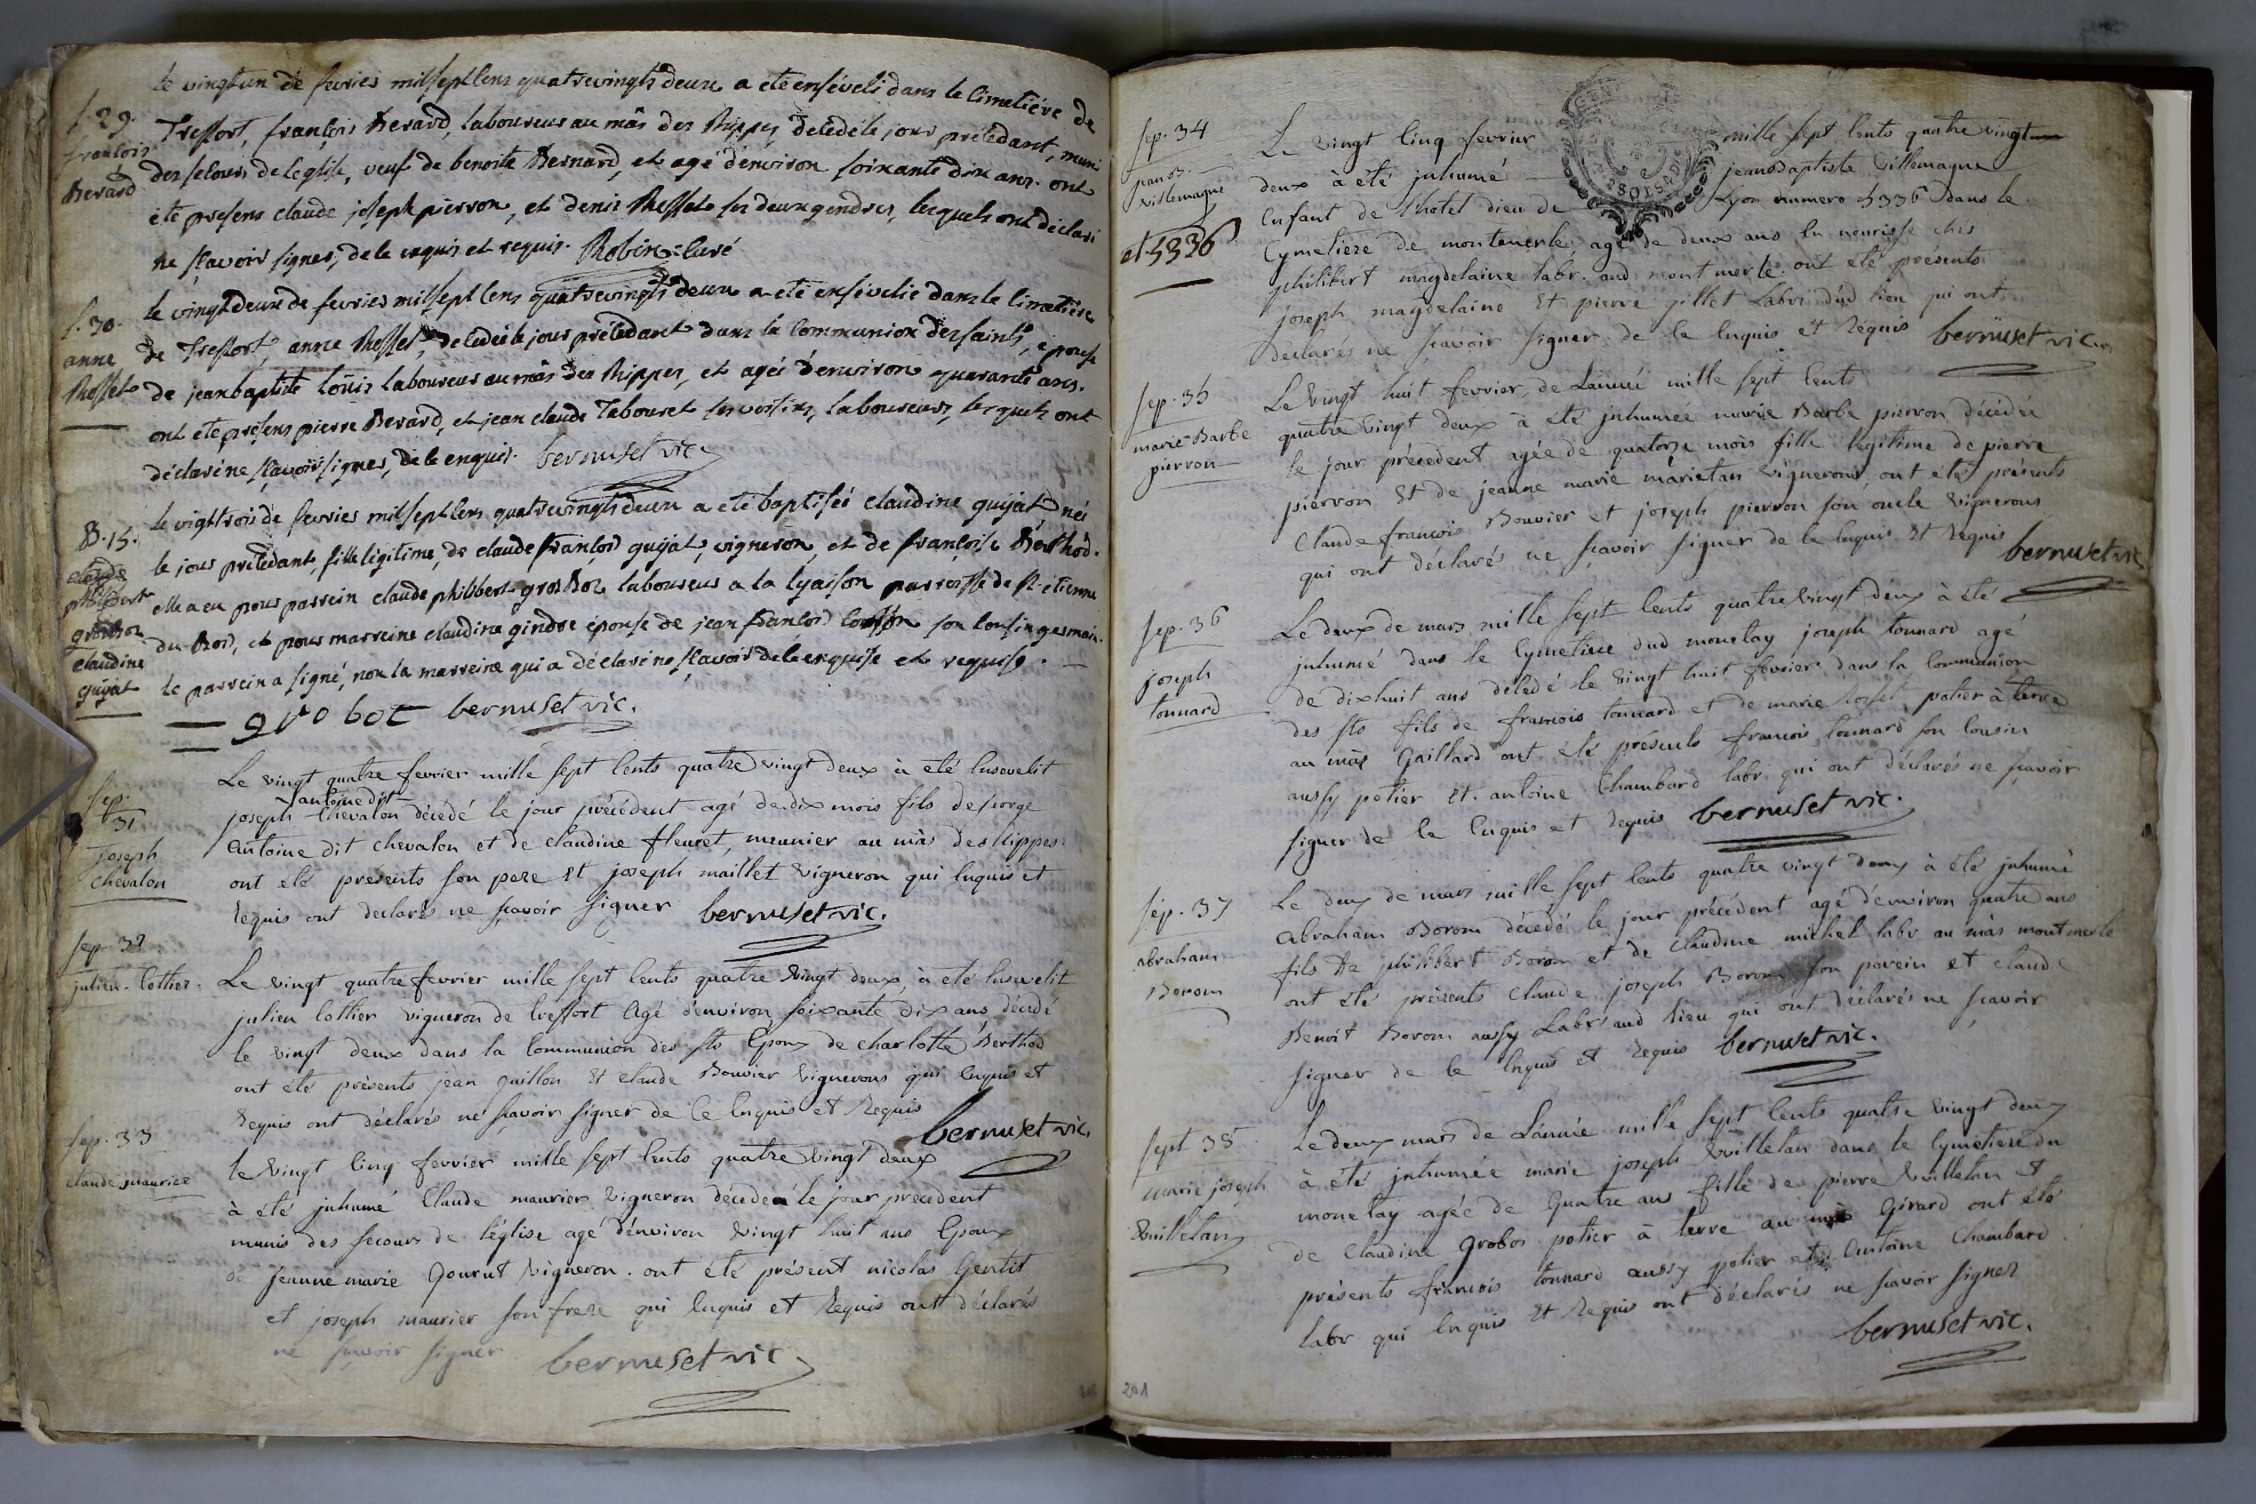 s. 29.
françois
Berard
le vingtun de fevrier mil sept cens quatrevingts deux a été enséveli dans le cimetiére de
Treffort, françois Berard, laboureur au mâs des Rippes, décédé le jour précédant, muni
des secours de l'eglise, veuf de benoite Bernard, et agé d'environ soixante dix ans. ont
été presens claude joseph pierron, et denis Rosset ses deux gendres, lesquels ont déclaré
ne sçavoir signer, de le enquis et requis. Robin curé
s. 30.
anne
Rosset
le vingtdeux de fevrier mil sept cens quatrevingts deux a été ensévelie dans le cimetiére
de Treffort, anne Rosset, decedée le jour précédant dans la communion des saints, épouse
de jean baptiste Loüis laboureur au mâs des Rippes, et agée d'environ quarante ans.
ont été présens pierre Berard, et jean claude Tabouret ses voisins, laboureurs, lesquels ont
déclaré ne sçavoir signer, de le enquis. bernuset vic.
B. 15.
claude
philibert
grosbon
claudine
guyat
le vightrois de fevrier mil sept cens quatrevingts deux a été baptisée claudine guyat née
le jour précédant, fille légitime, de claude françois guyat, vigneron, et de françoise Berthod.
elle a eu pour parrein claude philibert grosbos laboureur a la lyaison parroisse de st. étienne
du Bois, et pour marreine claudine gindre épouse de jean françois son cousin germain.
le parrein a signé, non la marreine qui a déclaré ne sçavoir de le enquise et requise.
gro bot bernuset vic.
sep.
31
joseph
chevalon
Le vingt quatre fevrier mille sept cents quatre vingt deux à été Ensevelit
antoine dit
joseph chevalon décédé le jour précédent agé de dix mois fils de george
antoine dit chevalon et de claudine fleuret, meunier au mâs des Rippes
ont été présents son pere et joseph maillet vigneron qui Enquis et
Requis ont declarés ne sçavoir signer bernuset vic.
sep. 32
julien cottier.
Le vingt quatre fevrier mille sept cents quatre vingt deux, à été Ensevelit
julien Cottier vigneron de treffort Agé d'environ soixante dix ans décédé
le vingt deux dans la Communion des sts Epoux de charlotte Berthod
ont été présents jean guillon et claude Bouvier vignerons qui Enquis et
Requis ont déclarés ne sçavoir signer de le Enquis et Requis
bernuset vic.
sep. 33
claude maurice
le vingt cinq fevrier mille sept cents quatre vingt deux
à été inhumé Claude maurier vigneron décédé le jour précedent
munis des secours de l'église agé d'environ vingt huit ans Epoux
de jeanne marie gourut vigneron. ont été présent nicolas Gentit
et joseph maurier son frere qui Enquis et Requis ont déclarés
ne sçavoir signer bernuset vic.
sep. 34
jean B.
villemagne
et. 5336
Le vingt cinq fevrier mille sept cents quatre vingt
deux à été inhumé jean Baptiste villemagne
Enfant de l'hotel dieu de Lyon numero 5336 dans le
Cymetiere de montmerle agé de deux ans En nourisse chés
philibert magdelaine labr. aud montmerle. ont été présents
joseph magdelaine Et pierre gillet Labr. dud lieu qui ont
déclarés ne sçavoir signer de le Enquis et Réquis bernuset vic.
sep. 35
marie Barbe
pierron
Le vingt huit fevrier, de L'année mille sept cents
quatre vingt deux à été inhumée marie Barbe pierron décédée
le jour précedent agée de quatorze mois fille légitime de pierre
pierron Et de jeanne marie mariétan vignerons, ont étés présents
Claude françois Bouvier et joseph pierron son oncle vignerons
qui ont déclarés ne sçavoir signer de le Enquis et Requis
bernuset vic
sep. 36
joseph
tonnard
Le deux de mars mille sept cents quatre vingt deux à été
inhumé dans le Cymetiere dud monetay joseph tonnard agé
de dixhuit ans décédé le vingt huit fevrier dans la Communion
des sts fils de francois tonnard et de marie potier à terre
au mâs Gaillard ont été présents francois tonnard son cousin
aussy potier Et antoine Chambard labr. qui ont déclarés ne sçavoir
signer de le Enquis et Requis bernuset vic.
sép. 37
abraham
Borom
Le deux de mars mille sept cents quatre vingt deux à été inhumé
Abraham Borom décédé le jour précédent agé d'environ quatre ans
fils de philibert Borom et de Claudine michel labr. au mâs montmerle
ont été présents Claude joseph Borom son parein et claude
Benoit Borom aussy Labr. aud lieu qui ont déclarés ne sçavoir
signer de le Enquis et Requis bernuset vic.
sept 38
marie joseph
vuillelan
Le deux mars de L'année mille sept cents quatre vingt deux
à été inhumée marie joseph vuillelan dans le Cymetiere du
monetay agée de quatre ans fille de pierre vuillelan et
de Claudine Grobos potier à terre au mâs Girard ont été
présents francois tonnard aussy potier et Antoine Chambard
labr qui Enquis Et Requis ont déclarés ne sçavoir signer
bernuset vic.
201